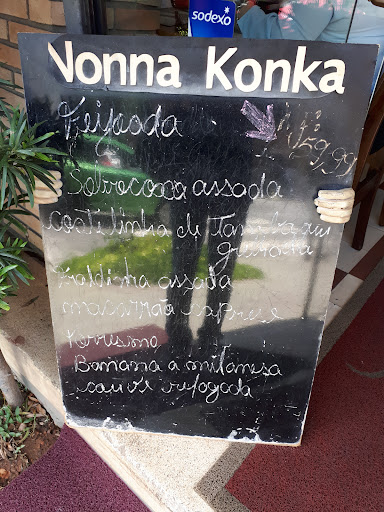 sodexo
Nonna Konka
Feijoada
29,99
Sobrecoxa assada
costilinha de Tambaqui
Fraldinha assada
macarrão caprese
torresmo
Banana a milanesa
couve refogada